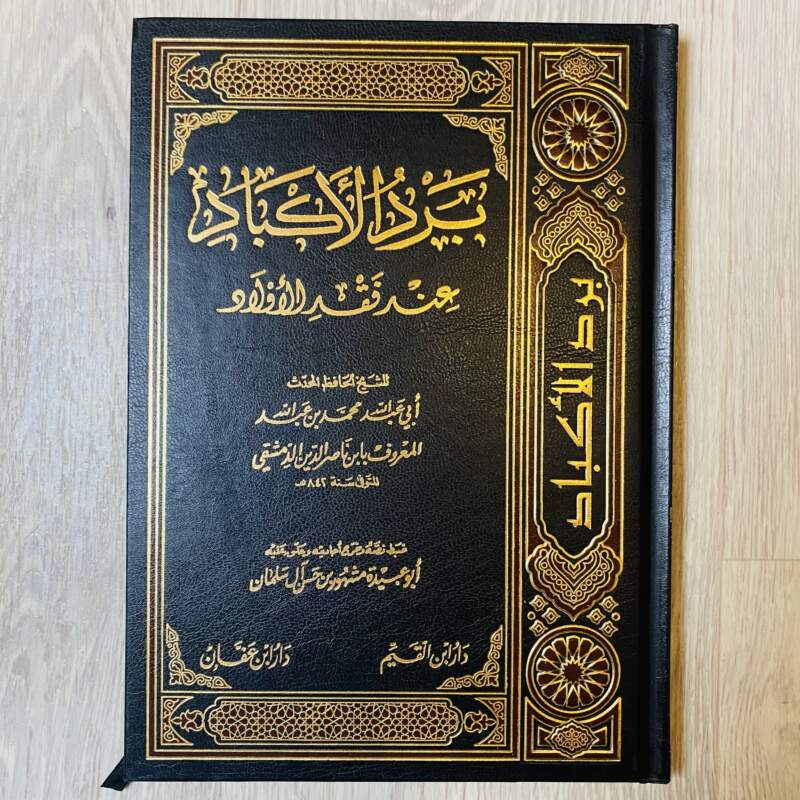 بَرْدُ الْأَكْبَادِ
عِنْدَ فَقْدِ الْأَوْلَادِ
للشيخ الحافظ المحدث
أبي عبد الله محمد بن عبد الله
المعروف بابن ناصر الدين الدمشقي
المتوفى سنة ٨٤٢ هـ
ضبط نصه وخرج أحاديثه وعلق عليه
أبو عبيدة مشهور بن حسن آل سلمان
دَارُ ابْنِ الْقَيِّمِ
دَارُ ابْنِ عَفَّانَ
برد الأكباد